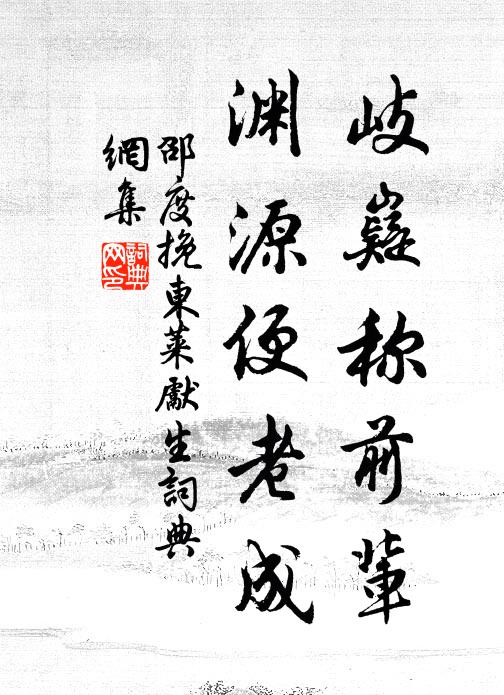 岐嶷称前輩
淵源便老成
邵度挽東萊獻生詞典
網集
詞典网印